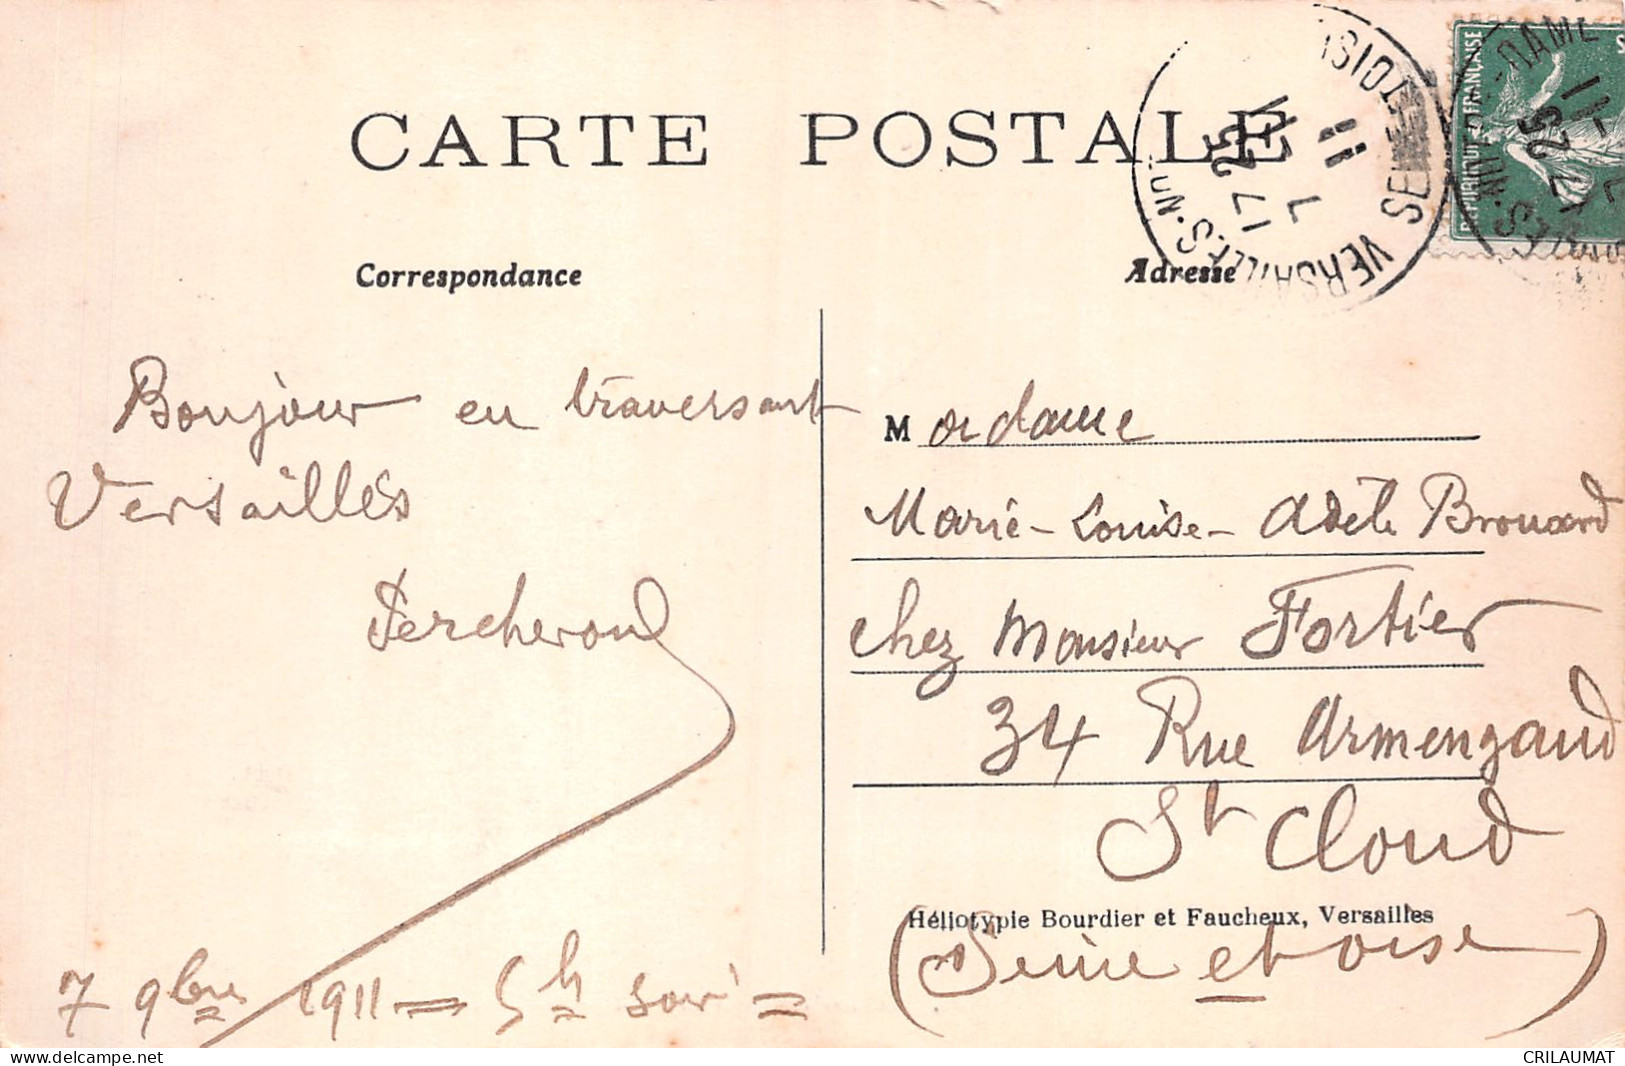 CARTE POSTALE
Correspondance
Adresse
RÉPUBLIQUE FRANÇAISE
VERSAILLES
SEINE-ET-OISE
17 25
7
11
Bonjour en traversant
Versailles
Percheron
7 9bre 1911 = 5h soir =
M adame
Marie-Louise-Adèle Brouard
chez Monsieur Fortier
34 Rue Armengaud
St Cloud
(Seine et Oise)
Héliotypie Bourdier et Faucheux, Versailles
CRILAUMAT
delcampe.net